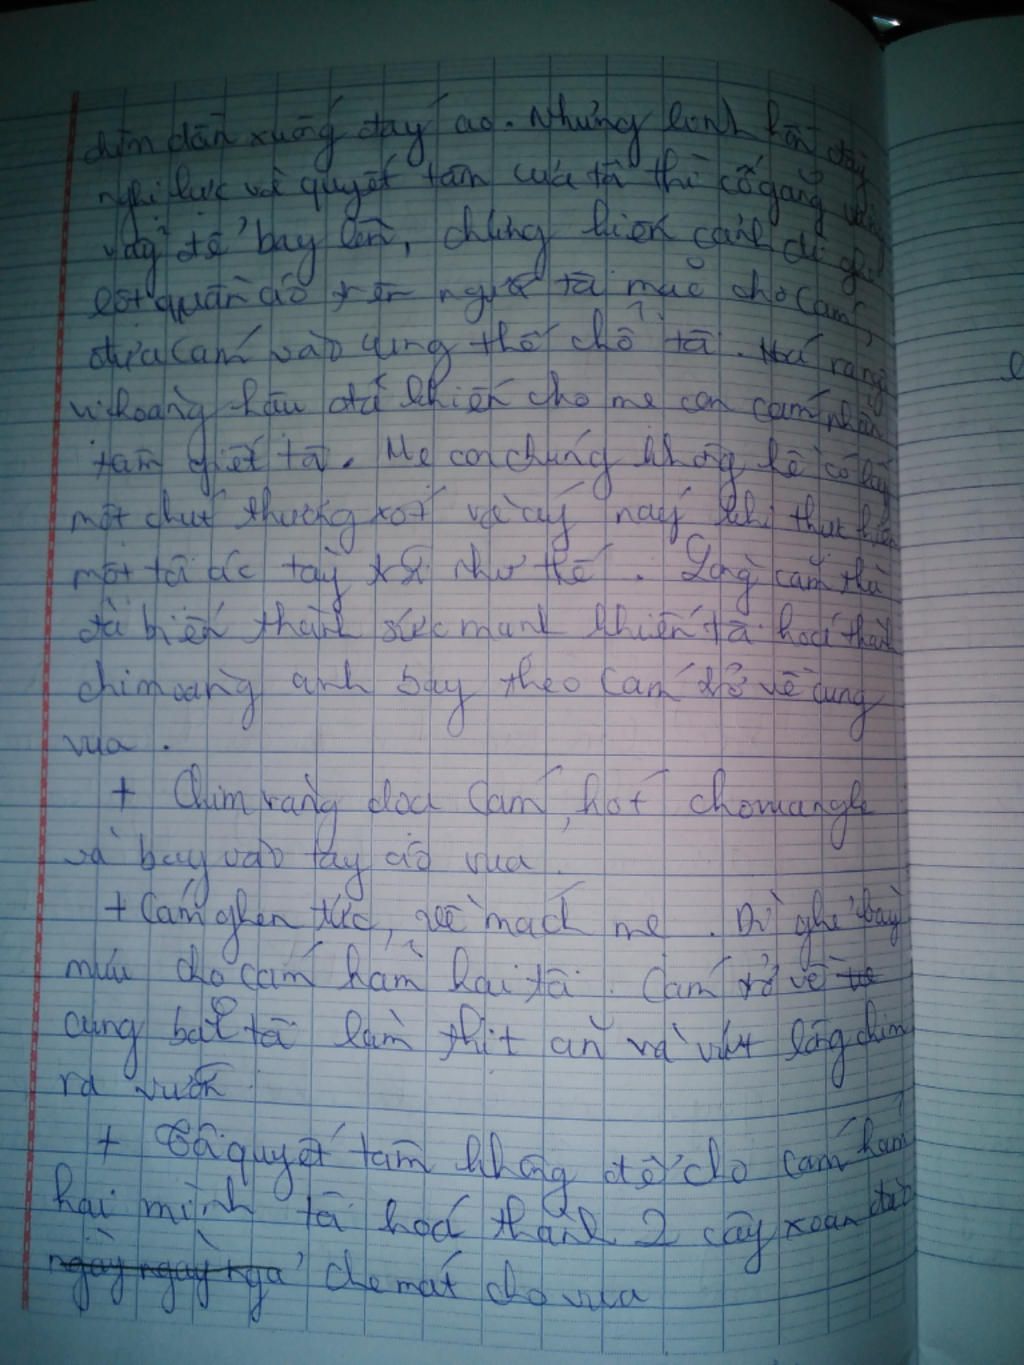 chìm dần xuống đáy ao. Nhưng linh hồn đầy
nghị lực và quyết tâm của ta thì cố gắng vùng
vẫy để bay lên, chứng kiến cảnh dì ghẻ
lột quần áo trên người ta mặc cho Cám,
đưa Cám vào cung thế chỗ ta. Hoá ra ngôi
vị hoàng hậu đã khiến cho mẹ con Cám nhẫn
tâm giết ta. Mẹ con chúng không hề có lấy
một chút thương xót và áy náy khi thực hiện
một tội ác tày trời như thế. Lòng căm thù
đã biến thành sức mạnh khiến ta hoá thành
chim vàng anh bay theo Cám trở về cung
vua.
+ Chim vàng doạ Cám, hót cho vua nghe
và bay vào tay áo vua.
+ Cám ghen tức, về mách mẹ. Dì ghẻ bày
mưu cho Cám hãm hại ta. Cám trở về
cung bắt ta làm thịt ăn và vứt lông chim
ra vườn.
+ Ta quyết tâm không để cho Cám hãm
hại mình ta hoá thành 2 cây xoan đào
ngày ngày ngả che mát cho vua